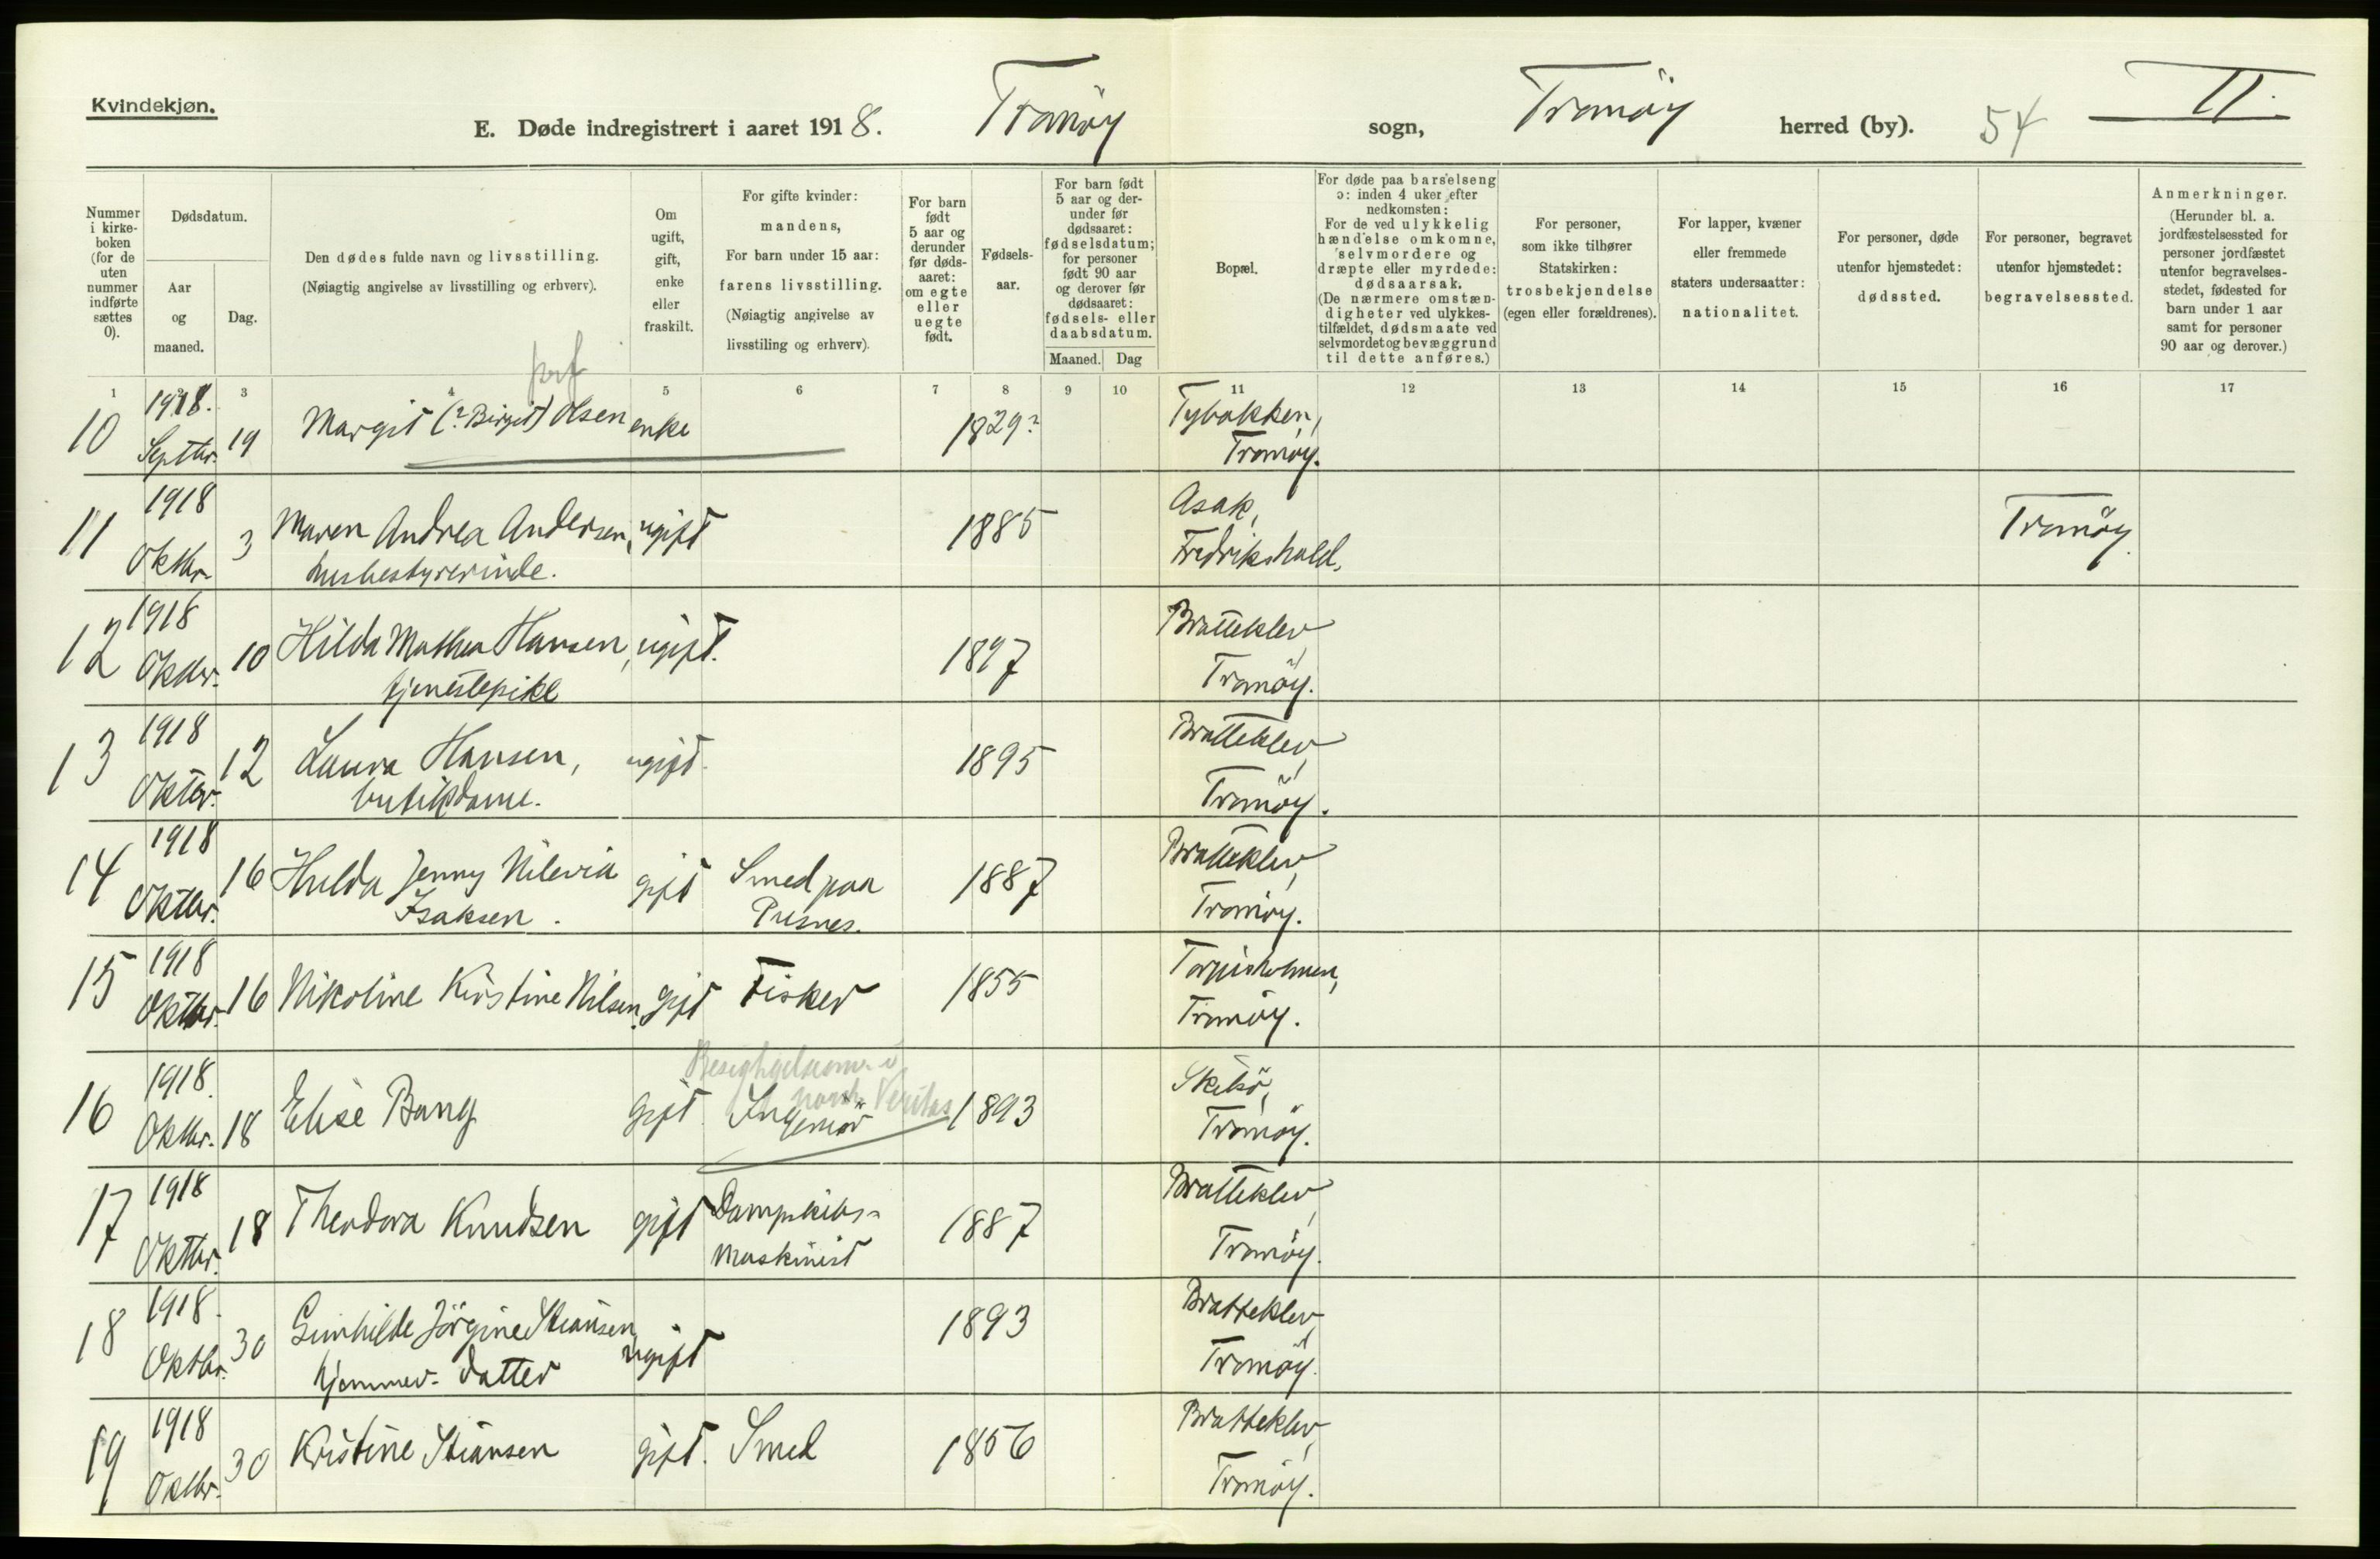 Kvindekjøn.
E. Døde indregistrert i aaret 1918. Tromøy sogn, Tromøy herred (by). 54 II.
Nummer i kirkeboken (for de uten nummer indførte sættes 0).
Dødsdatum.
Aar og maaned.
Dag.
Den dødes fulde navn og livsstilling.
(Nøiagtig angivelse av livsstilling og erhverv).
Om ugift, gift, enke eller fraskilt.
For gifte kvinder: mandens,
For barn under 15 aar: farens livsstilling.
(Nøiagtig angivelse av livsstiling og erhverv).
For barn født 5 aar og derunder før dødsaaret: om egte eller uegte født.
Fødselsaar.
For barn født 5 aar og derunder før dødsaaret: fødselsdatum; for personer født 90 aar og derover før dødsaaret: fødsels- eller daabsdatum.
Maaned. Dag
Bopæl.
For døde paa barselseng ɔ: inden 4 uker efter nedkomsten:
For de ved ulykkelig hændelse omkomne, selvmordere og dræpte eller myrdede: dødsaarsak.
(De nærmere omstændigheter ved ulykkestilfældet, dødsmaate ved selvmordet og bevæggrund til dette anføres.)
For personer, som ikke tilhører Statskirken: trosbekjendelse (egen eller forældrenes).
For lapper, kvæner eller fremmede staters undersaatter: nationalitet.
For personer, døde utenfor hjemstedet: dødssted.
For personer, begravet utenfor hjemstedet: begravelsessted.
Anmerkninger.
(Herunder bl. a. jordfæstelsessted for personer jordfæstet utenfor begravelsesstedet, fødested for barn under 1 aar samt for personer 90 aar og derover.)
1 3 4 5 6 7 8 9 10 11 12 13 14 15 16 17
10 1918. Septbr. 19 Margit (? Birgit) Olsen enke 1829? Tybakken, Tromøy.
11 1918 Oktbr. 3 Maren Andrea Andersen, husbestyrerinde. ugift 1885 Asak, Fredrikshald. Tromøy.
12 1918 Oktbr. 10 Hilda Mathea Hansen, tjenestepike ugift. 1897 Bratteklev, Tromøy.
13 1918 Oktbr. 12 Laura Hansen, butikdame. ugift. 1895 Bratteklev, Tromøy.
14 1918 Oktbr. 16 Hulda Jenny Nilevia Isaksen. gift Smed paa Pusnes. 1887 Bratteklev, Tromøy.
15 1918 Oktbr. 16 Nikoline Kirstine Nilsen. gift Fisker 1855 Torjusholmen, Tromøy.
16 1918. Oktbr. 18 Elise Bang gift. Ingeniør norsk Veritas 1893 Skilsø, Tromøy.
17 1918 Oktbr. 18 Theodora Knudsen gift Dampskibs-maskinist 1887 Bratteklev, Tromøy.
18 1918. Oktbr. 30 Gunhilde Jørgine Stiansen, hjemmev. datter ugift 1893 Bratteklev, Tromøy.
19 1918 Oktbr. 30 Kristine Stiansen gift. Smed 1856 Bratteklev, Tromøy.